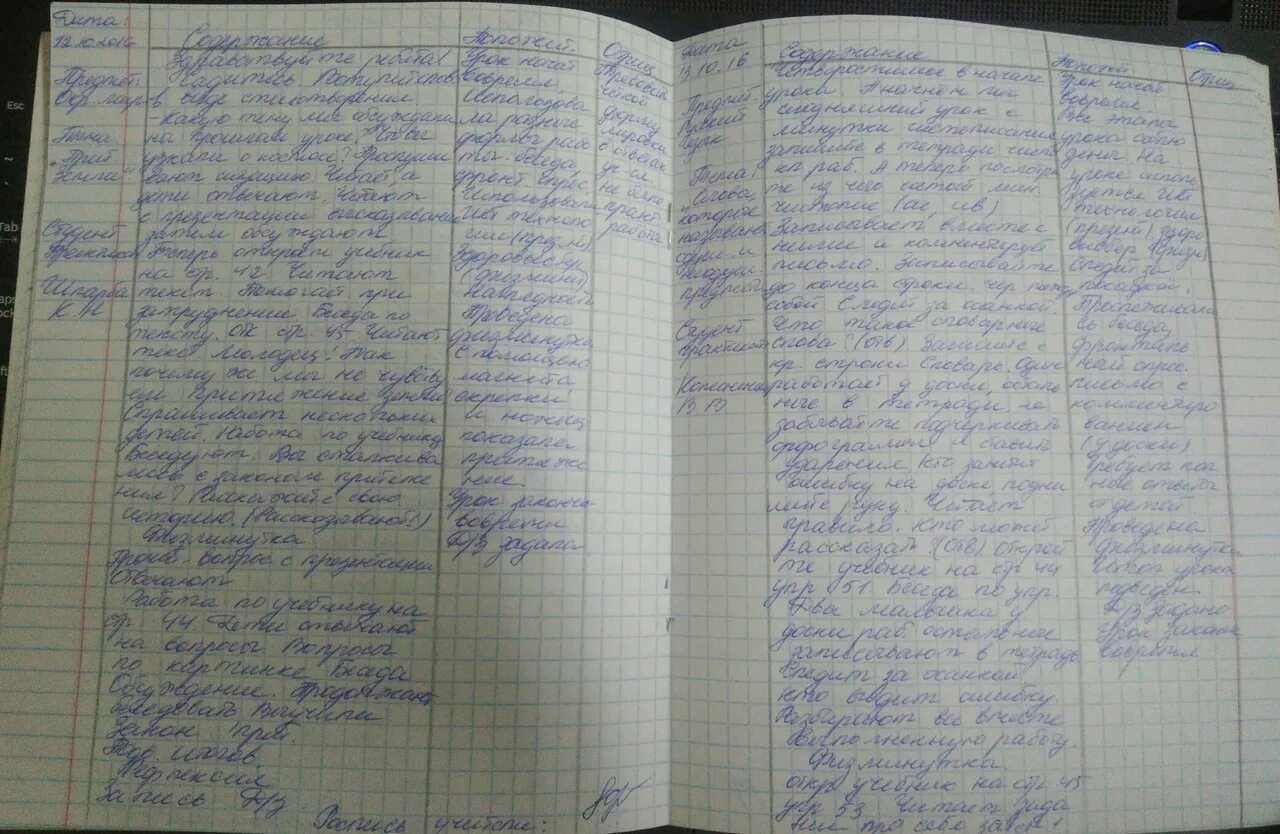 Дата:
12.10.2016
Предмет:
Окр. мир
Тема:
Прит.
Земли"
Студент
Практикант
Шпарба
К. Н
Содержание
Здравствуйте ребята!
Садитесь. Вступительное
в виде стихотворения
- Какую тему мы обсуждали
на прошлом уроке? Что вы
узнали о космосе?
вают ситуацию. Читает, а
дети отвечают. Читают
с презентации высказывания
затем обсуждают
Теперь откроем учебник
на стр. 42. Читают
текст. Помогает при
затруднении. Беседа по
тексту. стр. 43 Читают
текст. Молодец! Так
почему же мы не чувству
ем притяжение земли
Спрашивает нескольких
детей. Работа по учебнику
Беседуют. Вы сталкива
лись с законом притяже
ния? Расскажите свою
историю. (Рассказывают)
Физминутка
вопрос с презентации
Отвечают
Работа по учебнику на
стр. 44 Дети отвечают
на вопросы. Вопросы
по картинке Беседа
Обсуждение. Продолжают
беседовать Выучили
Закон прит.
Под. итогов
Рефлексия
Запись Д/з
Роспись учителя:
Положит.
Урок начат
вовремя,
Использова
ла разные
формы рабо
ты: беседа,
фронт. опрос
Использовали
ИКТ техноло
гии (през-ия)
Здоровьесбер.
(физмин)
Наглядность
Проведена
физминутка
С помощью
магнита
скрепки
и ножниц
показала
притяже
ние.
Урок закончен
вовремя
Д/З задала
Отриц
Требовать
чёткой
форму
лировки
в ответах
уч-ся.
не было
работы
Дата
13.10.16
Предмет:
Русский
язык
Тема:
"Слова,
которые
называют
один и
предметы
Студент
практикант
В В
Содержание
Четверостишие в начале
урока. А начнём мы
сегодняшний урок с
минутки чистописания
запишите в тетради число
кл раб. А теперь посмотри
те из чего состоит мин
чистопис (ае, ив)
Записывает вместе с
ними и комментирует
письмо. Записывайте
до конца строки
собой Следит за осанкой.
Что такое словарные
слова? (отв) Запишите с
кр. строки Словарь. Один
работает у доски, осталь
ные в тетради, не
забывайте подчеркивать
орфограммы и ставить
ударения. Кто заметит
ошибку на доске, подни
мите руку. Читает
правило. Кто может
рассказать? (отв) открой
те учебник на стр 44
упр 51. Беседа по упр.
Два мальчика у
доски раб. остальные
записывают в тетрадь
Следит за осанкой
кто видит ошибку.
Разбирают все вместе
выполненную работу.
Физминутка
откр учебник на стр 45
упр 53. Читаем зада
ние про себя
Положит
Урок начат
вовремя.
Все этапы
урока соблю
дены. На
уроке исполь
зуется ИКТ
технологии
(презент) здоро
Следит за
посадкой.
Прослеживала
сь беседа,
фронталь
ный опрос.
письмо с
комментиро
ванием
(у доски)
Требует пол
ные ответы
от детей
Проведена
физминутка
Итог урока
подведен
Д/З задано
Урок закон
вовремя
Отриц